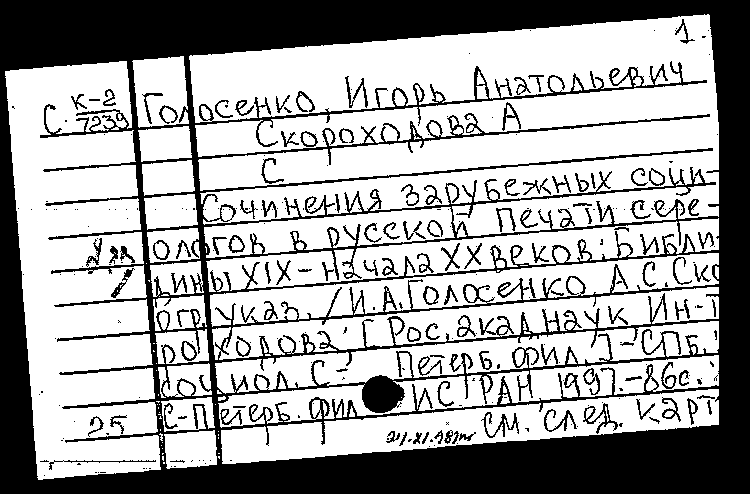 1.
С К-2 7239 Голосенко, Игорь Анатольевич
Скороходова А
С
Сочинения зарубежных соци-
ологов в русской печати сере-
дины XIX – начала XX веков: Библи-
огр. указ. / И.А. Голосенко, А.С. Ско
роходова; [Рос. акад наук, Ин-т
социол. С- Петерб. фил.]-СПб.:
25 С-Петерб. фил. ИС РАН, 1997.-86с.:
см. след. карт